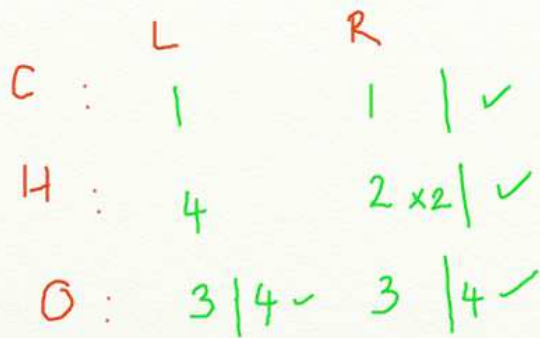 L R
C : 1 1 | ✓
H : 4 2 ×2 | ✓
O : 3 | 4 ✓ 3 | 4 ✓